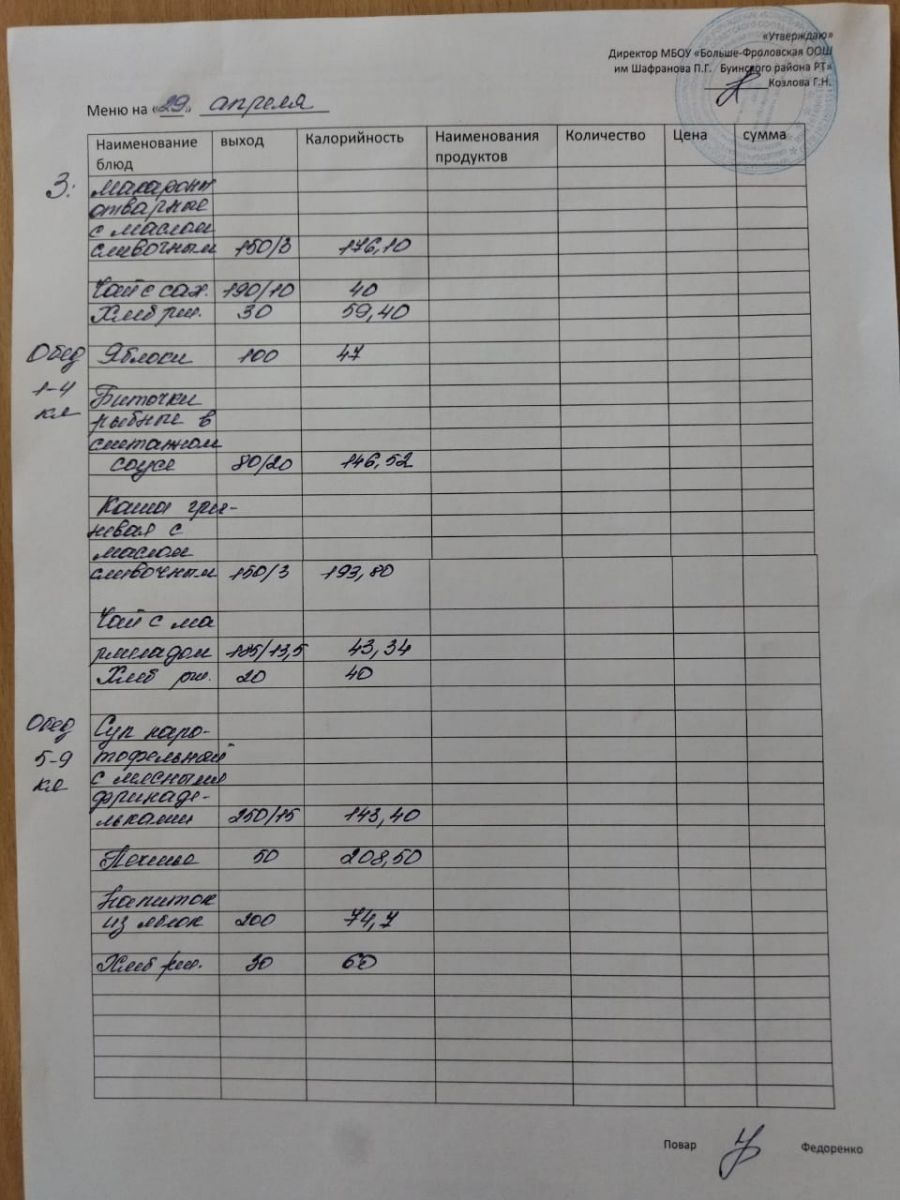 «Утверждаю»
Директор МБОУ «Больше-Фроловская ООШ
им Шафранова П.Г. Буинского района РТ»
Козлова Г.Н.
Меню на «29» апреля
Наименование блюд выход Калорийность Наименования продуктов Количество Цена сумма
З: Макароны
отварные
с маслом
сливочным 150/3 176,10
Чай с сах. 190/10 40
Хлеб рж. 30 59,40
Обед Яблоки 100 47
1-4 Биточки
кл рыбные в
сметанном
соусе 80/20 146,52
Каша гри-
невая с
маслом
сливочным 150/3 193,80
Чай с ма
рмеладом 185/13,5 43,34
Хлеб рж. 20 40
Обед Суп каро-
5-9 тофельной
кл с мясными
фрикаде-
льками 250/15 143,40
Печенье 50 208,50
Напиток
из яблок 200 74,7
Хлеб рж. 30 60
Повар Федоренко